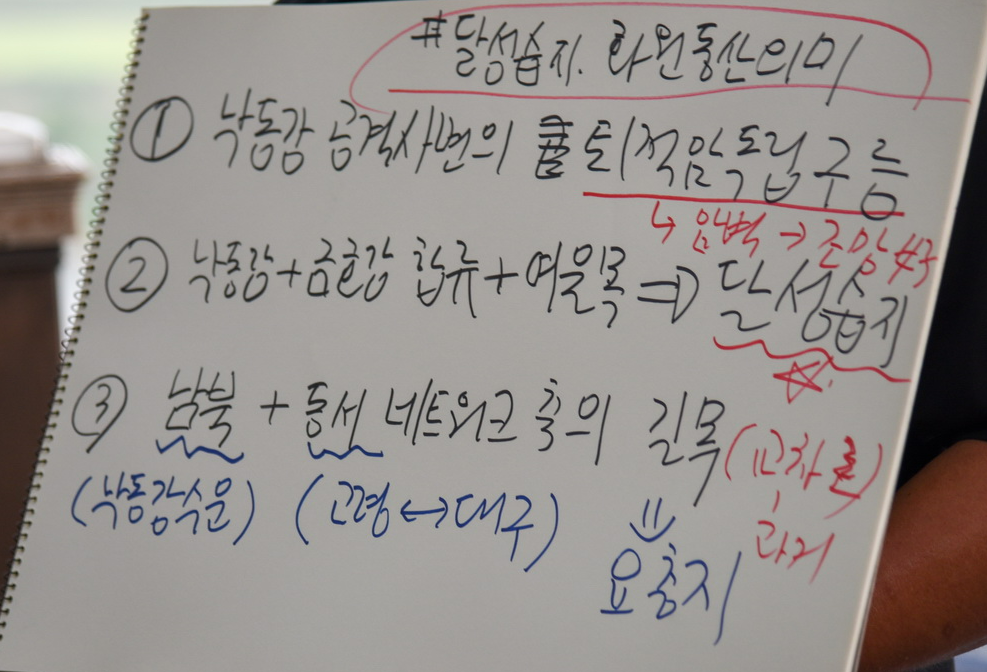 #달성습지. 화원동산의미
① 낙동강 공격사면의 퇴적암독립구릉
↳ 암벽 → 조망
② 낙동강+금호강 합류+여울목 ⇒ 달성습지
③ 남북 + 동서 네트워크 축의 길목 (교차로)
(낙동강수운) (고령↔대구)
과거
요충지